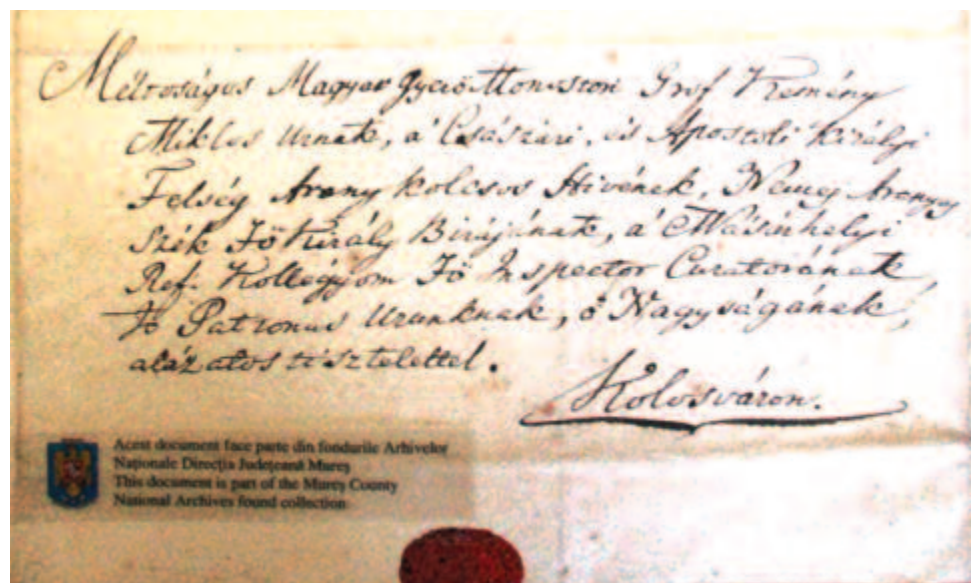 Méltoságos Magyar Gyerö Monostori Grof Kemény
Miklos Urnak, a' Császári, és Apostoli Királyi
Felség Arany kolcsos Hivének, Nemes Aranyos
Szék Fö Király Birájának, a' M Vásárhelyi
Ref. Kollégyom Fö Inspector Curatorának,
Fö Patronus Urunknak, ö Nagyságának,
alázatos tisztelettel.
Kolosváron.
Acest document face parte din fondurile Arhivelor
Naționale Direcția Județeană Mureș
This document is part of the Mureș County
National Archives found collection